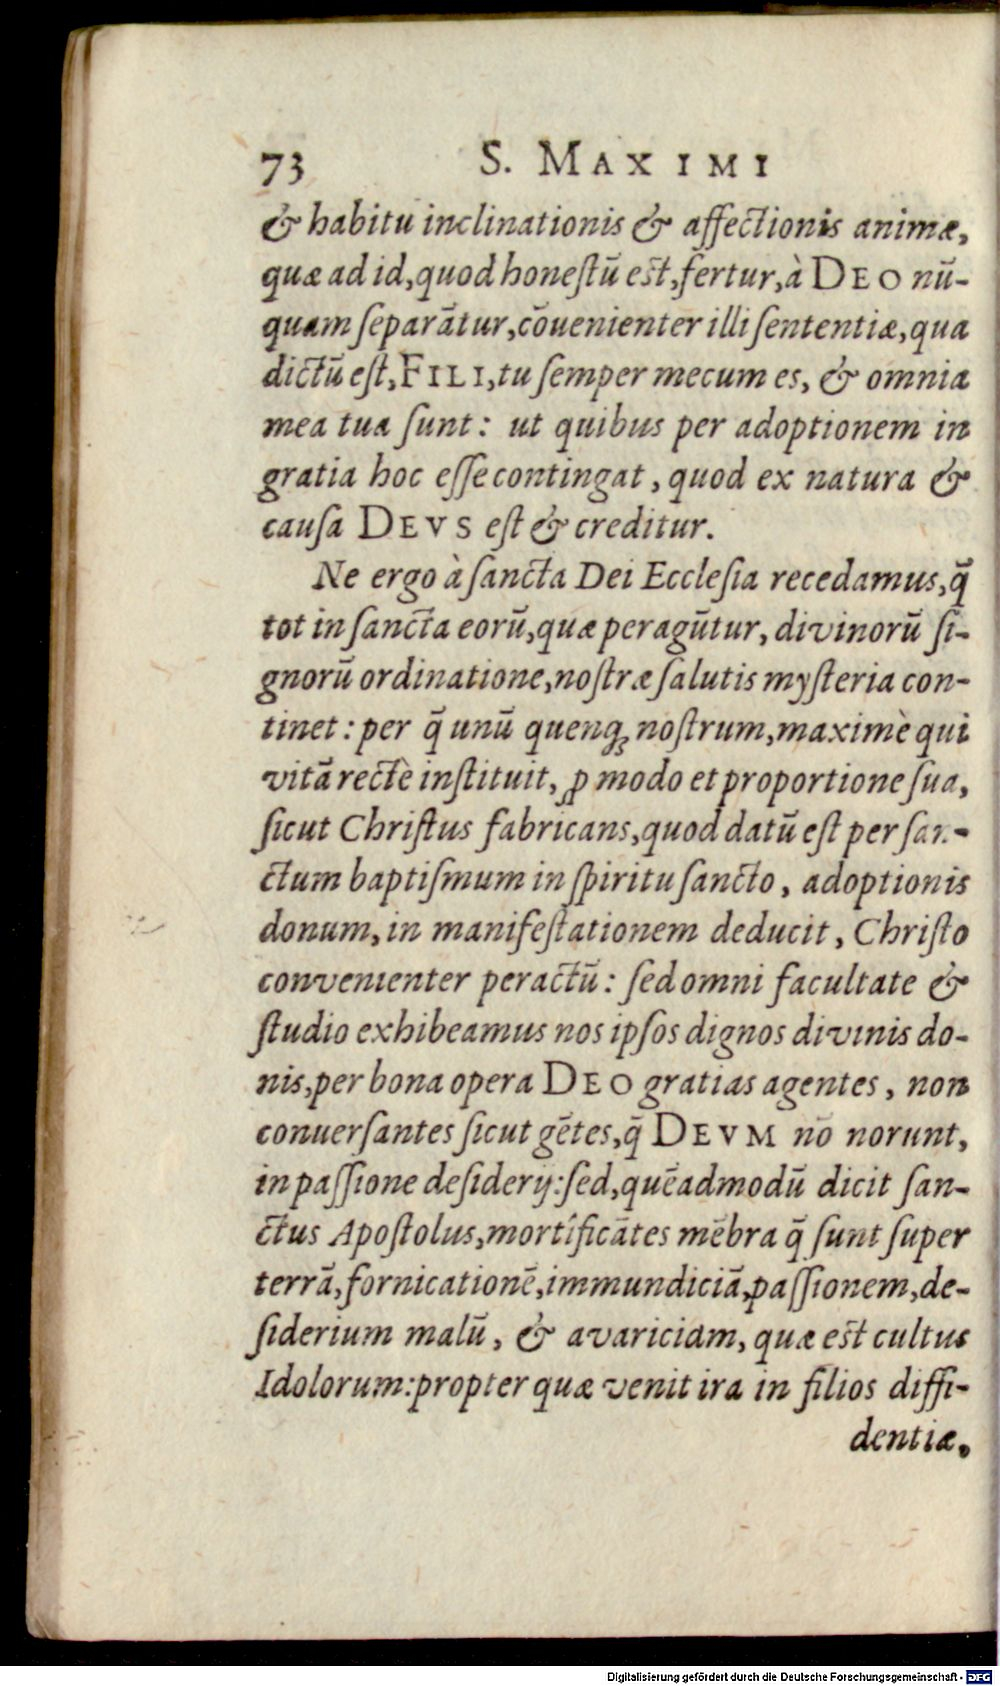 73 S. MAXIMI
& habitu inclinationis & affectionis animæ,
quæ ad id, quod honeſtũ eſt, fertur, à DEO nũ-
quam ſeparãtur, cõuenienter illi ſententiæ, qua
dictũ eſt, FILI, tu ſemper mecum es, & omnia
mea tua ſunt: ut quibus per adoptionem in
gratia hoc eſſe contingat, quod ex natura &
cauſa DEVS eſt & creditur.
Ne ergo à ſancta Dei Eccleſia recedamus, q̃
tot in ſancta eorũ, quæ peragũtur, divinorũ ſi-
gnorũ ordinatione, noſtræ ſalutis myſteria con-
tinet: per q̃ unũ quenq; noſtrum, maximè qui
vitã rectè inſtituit, ꝓ modo et proportione ſua,
ſicut Chriſtus fabricans, quod datũ eſt per ſan-
ctum baptiſmum in ſpiritu ſancto, adoptionis
donum, in manifeſtationem deducit, Chriſto
convenienter peractũ: ſed omni facultate &
ſtudio exhibeamus nos ipſos dignos divinis do-
nis, per bona opera DEO gratias agentes, non
conuerſantes ſicut gẽtes, q̃ DEVM nō norunt,
in paſſione deſiderij: ſed, quẽadmodũ dicit ſan-
ctus Apoſtolus, mortificãtes mẽbra q̃ ſunt ſuper
terrã, fornicationẽ, immundiciã, paſſionem, de-
ſiderium malũ, & avariciam, quæ eſt cultus
Idolorum: propter quæ venit ira in filios diffi-
dentiæ,
Digitalisierung gefördert durch die Deutsche Forschungsgemeinschaft - DFG